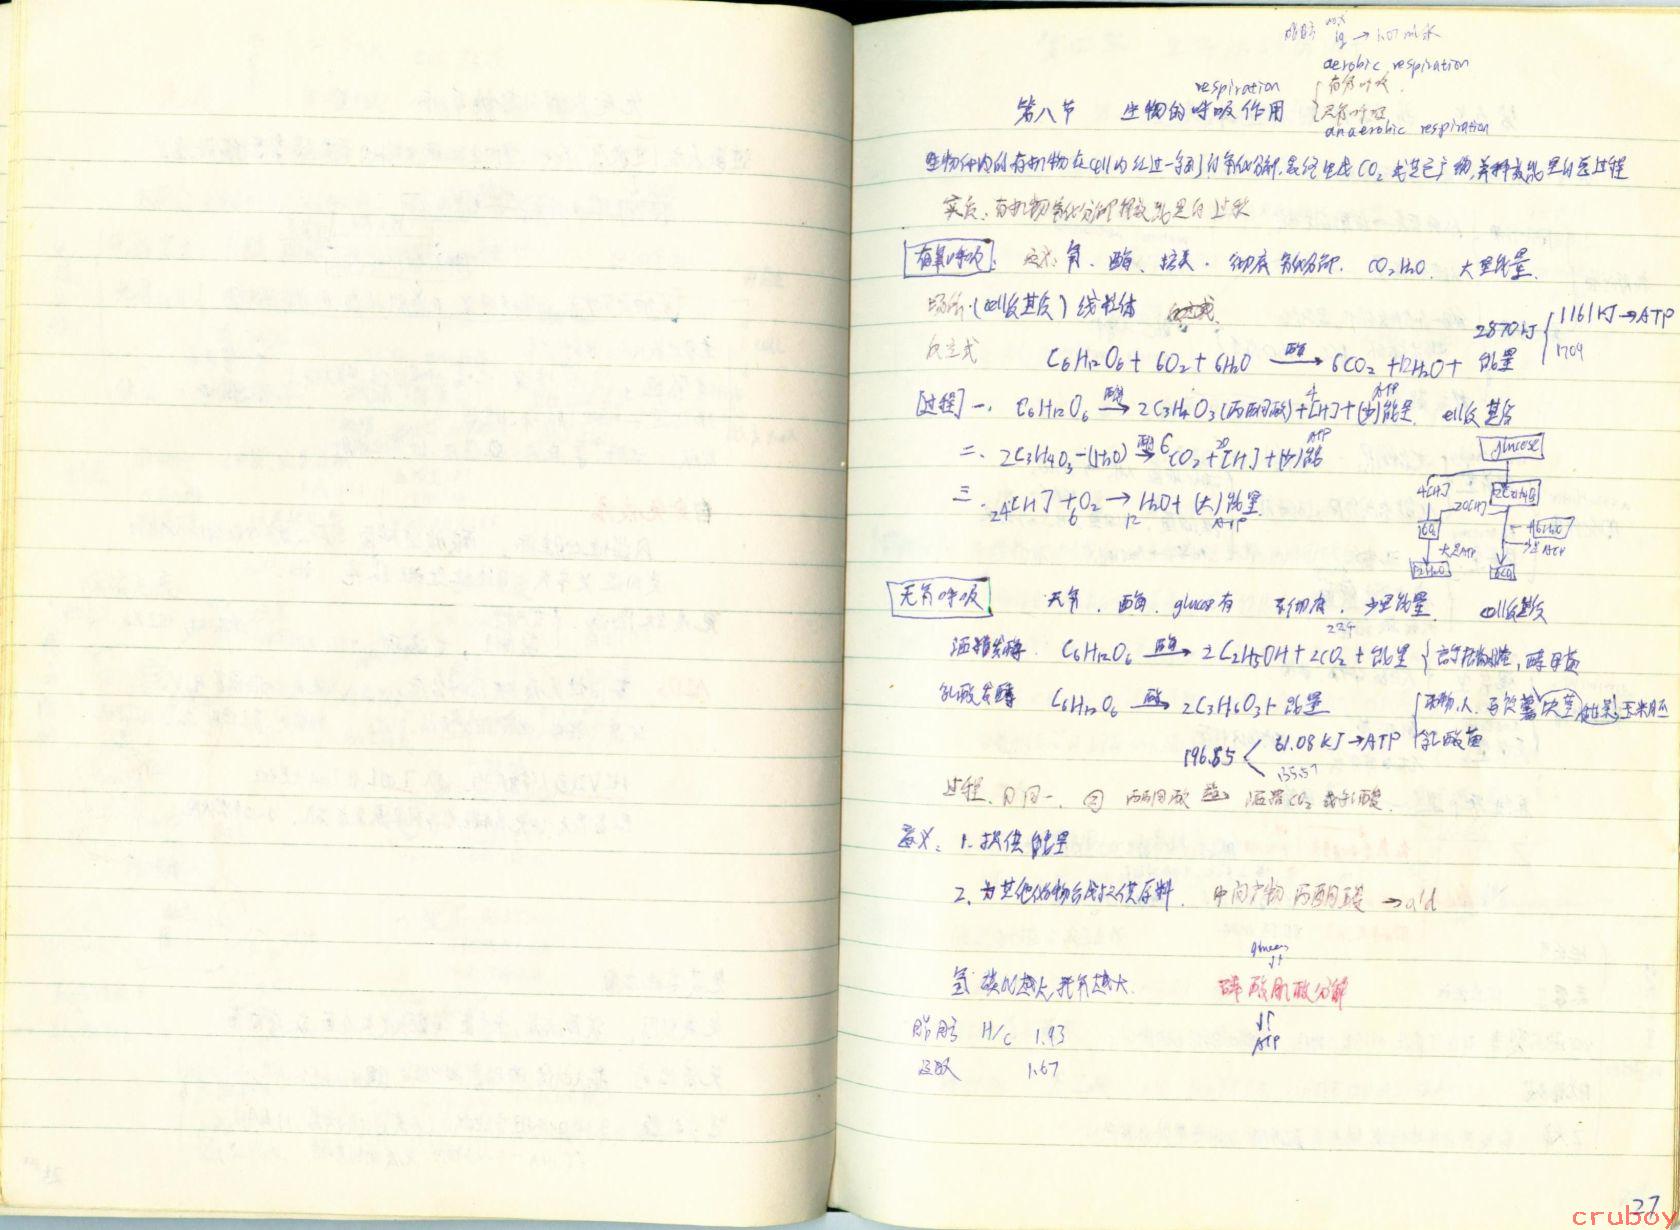 脂肪 1g → 1.07ml水
aerobic respiration
respiration 有氧呼吸
第八节 生物的呼吸作用 无氧呼吸
anaerobic respiration
生物体内的有机物在cell内经过一系列的氧化分解,最终生成CO₂或其它产物,并释放能量的总过程
实质:有机物氧化分解释放能量的过程
有氧呼吸: 氧、酶、糖类. 彻底氧化分解. CO₂ H₂O. 大量能量.
场所.(cell质基质)线粒体
2870kJ { 1161kJ→ATP
1709
反应式 C₆H₁₂O₆ + 6O₂ + 6H₂O 酶→ 6CO₂ + 12H₂O + 能量
[过程] 一. C₆H₁₂O₆ 酶→ 2C₃H₄O₃(丙酮酸)+4[H]+(少)能量 ATP cell质基质
二. 2C₃H₄O₃-(6H₂O) 酶→ 6CO₂+20[H]+(少)能 ATP
三. 24[H]+6O₂→12H₂O+(大)能量 ATP
glucose
4[H] 2C₃H₄O₃
20[H]
6O₂ 6H₂O
大量ATP 少量ATP
12H₂O 6CO₂
无氧呼吸 无氧、酶、glucose有 不彻底. 少量能量. cell质基质
224
酒精发酵. C₆H₁₂O₆ 酶→ 2C₂H₅OH + 2CO₂ + 能量 { 高等植物, 酵母菌
乳酸发酵 C₆H₁₂O₆ 酶→ 2C₃H₆O₃ + 能量 { 动物,人、马铃薯块茎, 甜菜, 玉米胚
乳酸菌
196.65 < 61.08kJ→ATP
135.57
过程. ①同一. ② 丙酮酸 酶→ 酒精CO₂或乳酸.
意义: 1. 提供能量
2. 为其他化合物合成提供原料. 中间产物 丙酮酸 → a'd
氢碳比越大,耗氧越大. 磷酸肌酸分解
↓↑
ATP
脂肪 H/C 1.93
1.67
27
cruboy